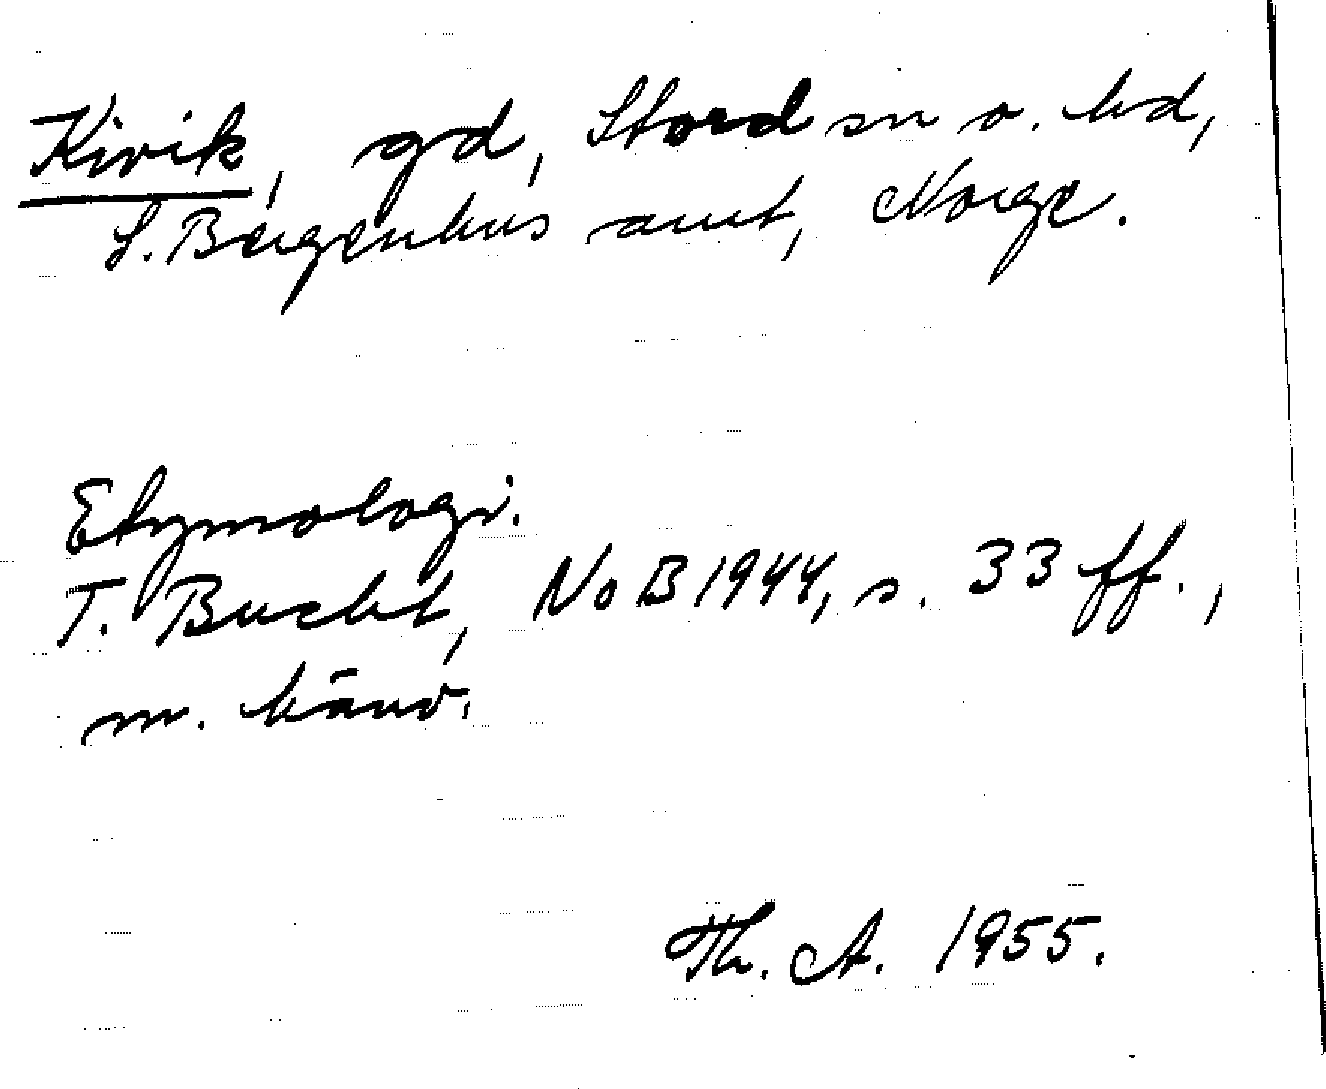 Kivik, gd, Stord sn o. hd,
S. Bergenhus amt, Norge.
Etymologi.
T. Bucht, NoB 1944, s. 33 ff.,
m. hänv.
Th. A. 1955.